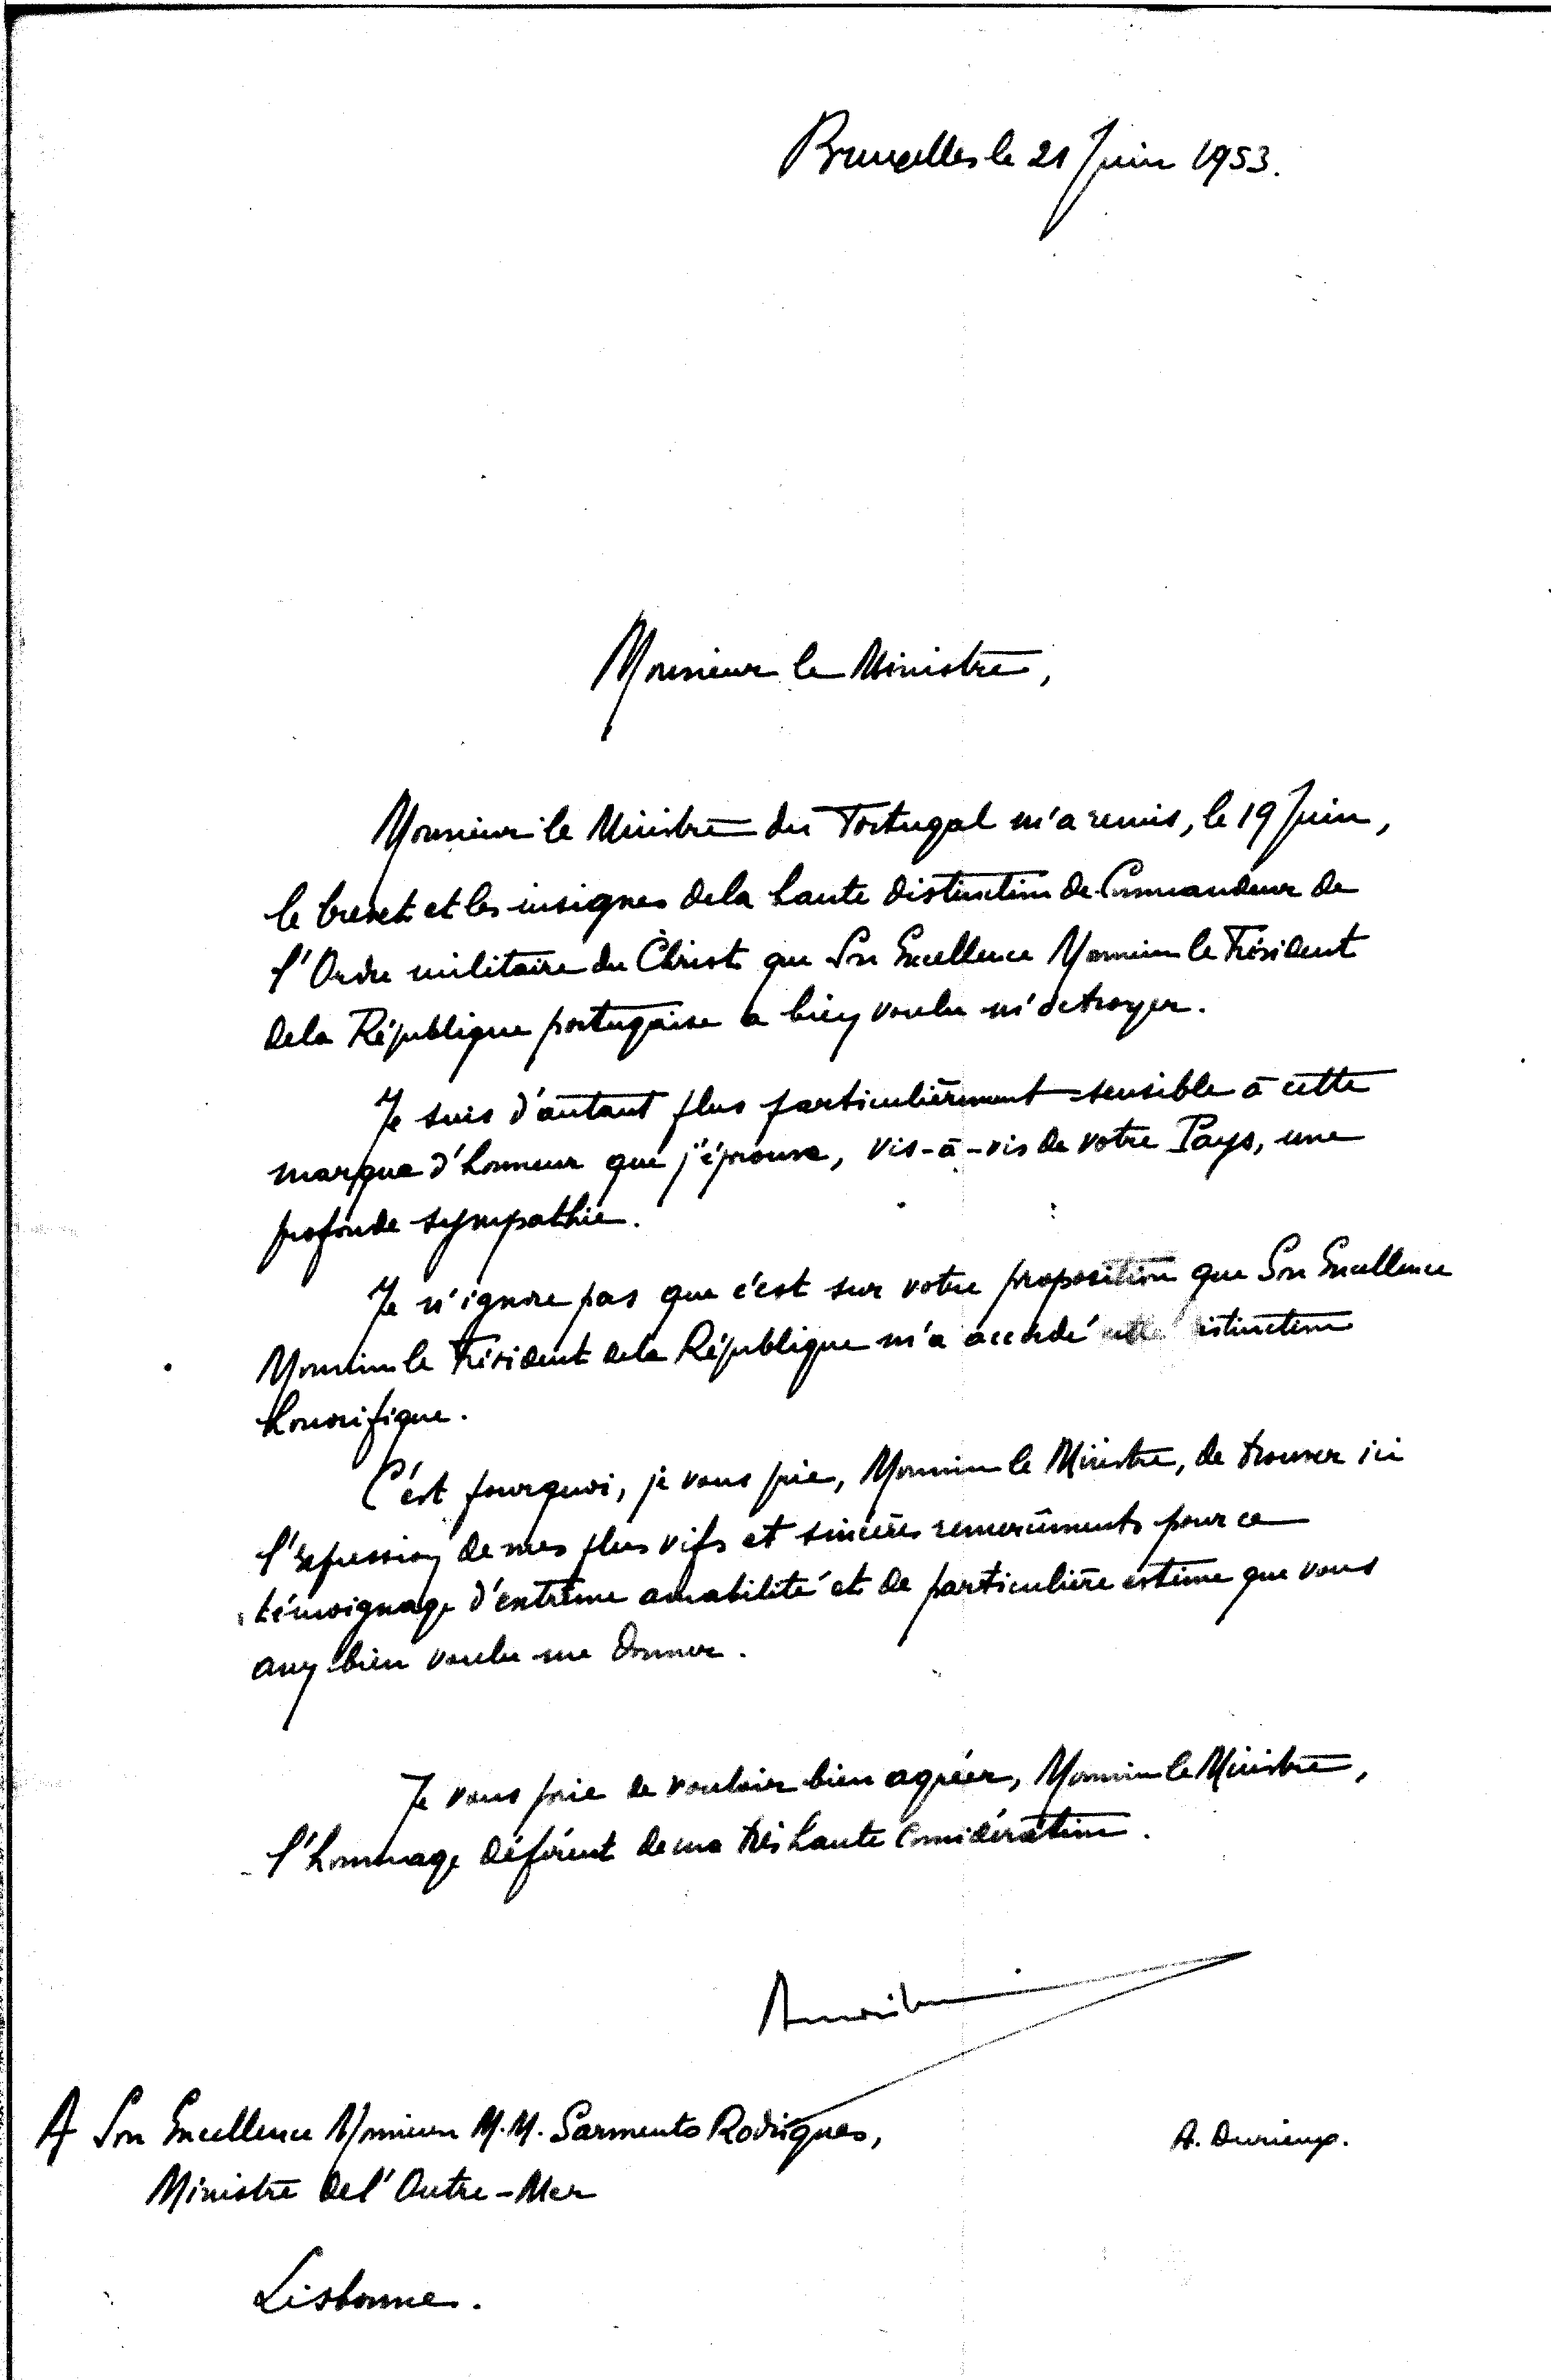 Bruxelles le 21 Juin 1953.
Monsieur le Ministre,
Monsieur le Ministre du Portugal m'a remis, le 19 Juin,
le brevet et les insignes de la haute distinction de Commandeur de
l'Ordre militaire du Christ que Son Excellence Monsieur le Président
de la République portugaise a bien voulu m'octroyer.
Je suis d'autant plus particulièrement sensible à cette
marque d'honneur que j'éprouve, vis-à-vis de votre Pays, une
profonde sympathie.
Je n'ignore pas que c'est sur votre proposition que Son Excellence
Monsieur le Président de la République m'a accordé cette distinction
honorifique.
C'est pourquoi, je vous prie, Monsieur le Ministre, de trouver ici
l'expression de mes plus vifs et sincères remerciments pour ce
témoignage d'extrême amabilité et de particulière estime que vous
avez bien voulu me donner.
Je vous prie de vouloir bien agréer, Monsieur le Ministre,
l'hommage déférent de ma très haute considération.
A Son Excellence Monsieur M.M. Sarmento Rodrigues,
A. Durieux.
Ministre de l'Outre-Mer
Lisbonne.